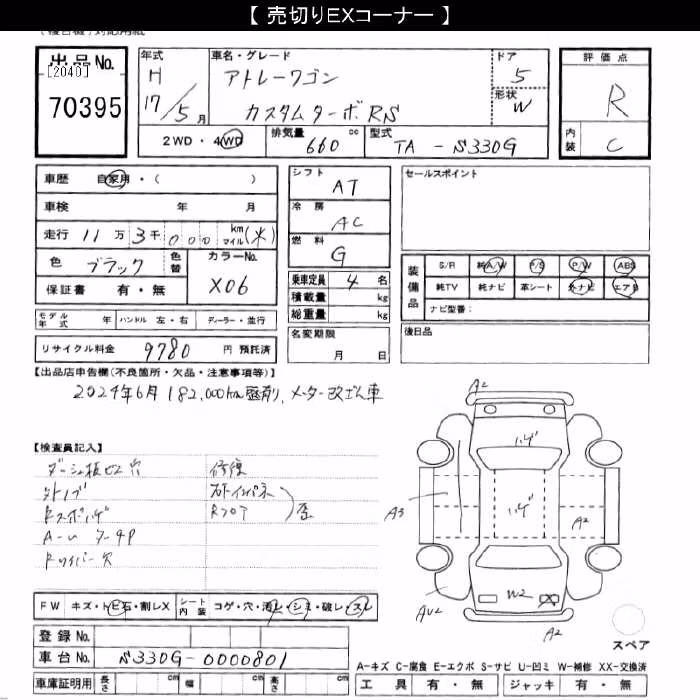 【 売切りEXコーナー 】
出品No.
[2040]
70395
年式
H
17/5月
車名・グレード
アトレーワゴン
カスタムターボRS
ドア
5
形状
W
2WD・4WD
排気量
660 cc
型式
TA - S330G
評価点
R
内装
C
車歴 自家用・( )
車検 年 月
走行 11万3千000 km マイル (*)
色 ブラック 色替
カラーNo.
X06
保証書 有・無
モデル年式 年 ハンドル 左・右 ディーラー・並行
リサイクル料金 9780 円 預託済
シフト
AT
冷房
AC
燃料
G
乗車定員 4 名
積載量 kg
総重量 kg
名変期限
月 日
セールスポイント
装備品
S/R 純A/W P/S P/W ABS
純TV 純ナビ 革シート 外ナビ エアB
ナビ型番:
後日品
【出品店申告欄(不良箇所・欠品・注意事項等)】
2024年6月 182,000km 、メーター改ざん車
【検査員記入】
ダッシュ板ビス穴
外ノブ
ドライバー欠
修復
Rフロア
歪
FW キズ・トビ石・割レX シート内装 コゲ・穴・汚レ・シミ・破レ・スレ
登録No.
車台No. S330G-0000801
車庫証明用 長さ cm 幅 cm 高さ cm
A2
ハゲ
ハゲ
A3
A2
W2
X
AU2
A2
スペア
A-キズ C-腐食 E-エクボ S-サビ U-凹ミ W-補修 XX-交換済
工具 有・無 ジャッキ 有・無